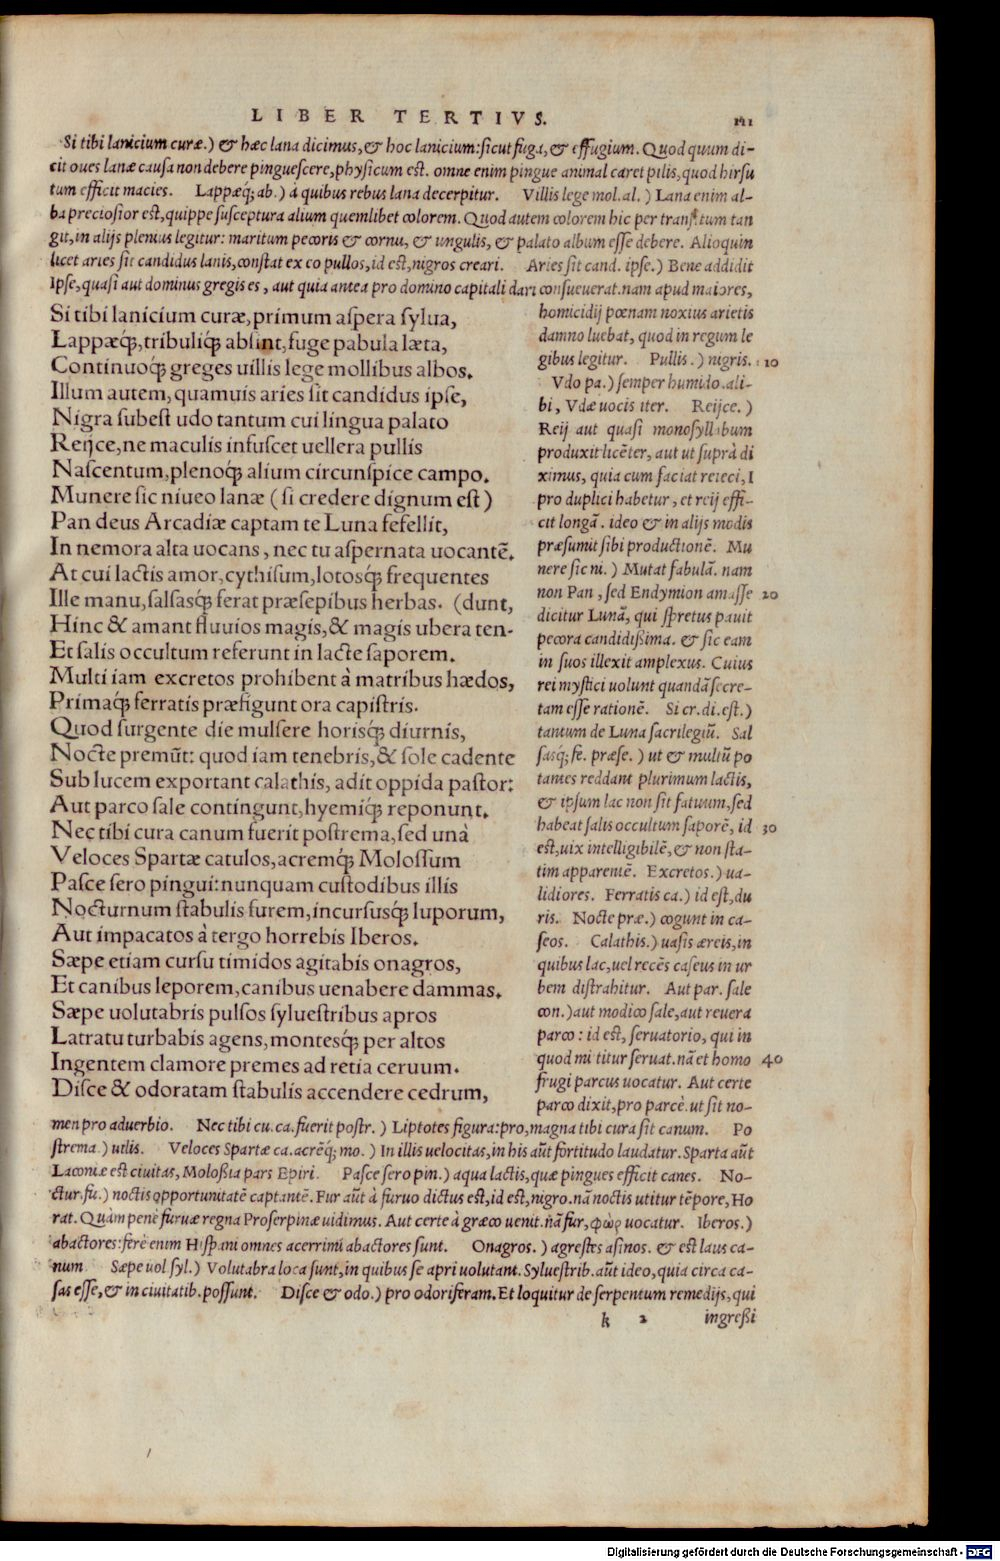 LIBER TERTIVS.
111
Si tibi lanicium curæ.) & hæc lana dicimus, & hoc lanicium: sicut fuga, & effugium. Quod quum di-
cit oues lanæ causa non debere pinguescere, physicum est. omne enim pingue animal caret pilis, quod hirsu
tum efficit macies. Lappæq́; ab.) à quibus rebus lana decerpitur. Villis lege mol. al.) Lana enim al-
ba preciosior est, quippe susceptura alium quemlibet colorem. Quod autem colorem hic per transitum tan
git, in alijs plenius legitur: maritum pecoris & cornu, & ungulis, & palato album esse debere. Alioquin
licet aries sit candidus lanis, constat ex eo pullos, id est, nigros creari. Aries sit cand. ipse.) Bene addidit
Ipse, quasi aut dominus gregis es, aut quia antea pro domino capitali dari consueuerat. nam apud maiores,
Si tibi lanicium curæ, primum aspera sylua,
Lappæq́;, tribuliq́; absint, fuge pabula læta,
Continuoq́; greges uillis lege mollibus albos.
Illum autem, quamuis aries sit candidus ipse,
Nigra subest udo tantum cui lingua palato
Reijce, ne maculis infuscet uellera pullis
Nascentum, plenoq́; alium circunspice campo.
Munere sic niueo lanæ (si credere dignum est)
Pan deus Arcadiæ captam te Luna fefellit,
In nemora alta uocans, nec tu aspernata uocantē.
At cui lactis amor, cythisum, lotosq́; frequentes
Ille manu, salsasq́; ferat præsepibus herbas. (dunt,
Hinc & amant fluuios magis, & magis ubera ten-
Et salis occultum referunt in lacte saporem.
Multi iam excretos prohibent à matribus hædos,
Primaq́; ferratis præfigunt ora capistris.
Quod surgente die mulsere horisq́; diurnis,
Nocte premūt: quod iam tenebris, & sole cadente
Sub lucem exportant calathis, adit oppida pastor:
Aut parco sale contingunt, hyemiq́; reponunt.
Nec tibi cura canum fuerit postrema, sed unà
Veloces Spartæ catulos, acremq́; Molossum
Pasce sero pingui: nunquam custodibus illis
Nocturnum stabulis furem, incursusq́; luporum,
Aut impacatos à tergo horrebis Iberos.
Sæpe etiam cursu timidos agitabis onagros,
Et canibus leporem, canibus uenabere dammas.
Sæpe uolutabris pulsos syluestribus apros
Latratu turbabis agens, montesq́; per altos
Ingentem clamore premes ad retia ceruum.
Disce & odoratam stabulis accendere cedrum,
homicidij pœnam noxius arietis
damno luebat, quod in regum le
gibus legitur. Pullis.) nigris. 10
Vdo pa.) semper humido. ali-
bi, Vdæ uocis iter. Reijce.)
Reij aut quasi monosyllabum
produxit licēter, aut ut suprà di
ximus, quia cum faciat reieci, I
pro duplici habetur, et reij effi-
cit longā. ideo & in alijs modis
præsumit sibi productionē. Mu
nere sic ni.) Mutat fabulā. nam
non Pan, sed Endymion amasse 20
dicitur Lunā, qui spretus pauit
pecora candidißima. & sic eam
in suos illexit amplexus. Cuius
rei mystici uolunt quandā secre-
tam esse rationē. Si cr. di. est.)
tantum de Luna sacrilegiū. Sal
sasq́; fe. præse.) ut & multū po
tantes reddant plurimum lactis,
& ipsum lac non sit fatuum, sed
habeat salis occultum saporē, id 30
est, uix intelligibilē, & non sta-
tim apparentē. Excretos.) ua-
lidiores. Ferratis ca.) id est, du
ris. Nocte præ.) cogunt in ca-
seos. Calathis.) uasis æreis, in
quibus lac, uel recēs caseus in ur
bem distrahitur. Aut par. sale
con.) aut modico sale, aut reuera
parco: id est, seruatorio, qui in
quod mititur seruat. nā et homo 40
frugi parcus uocatur. Aut certe
parco dixit, pro parcè. ut sit no-
men pro aduerbio. Nec tibi cu. ca. fuerit postr.) Liptotes figura: pro, magna tibi cura sit canum. Po
strema.) uilis. Veloces Spartæ ca. acrēq́; mo.) In illis uelocitas, in his aūt fortitudo laudatur. Sparta aūt
Laconiæ est ciuitas, Moloßia pars Epiri. Pasce sero pin.) aqua lactis, quæ pingues efficit canes. No-
ctur. fu.) noctis opportunitatē captantē. Fur aūt à furuo dictus est, id est, nigro. nā noctis utitur tēpore, Ho
rat. Quàm penè furuæ regna Proserpinæ uidimus. Aut certe à græco uenit. nā fur, φὼρ uocatur. Iberos.)
abactores: ferè enim Hispani omnes acerrimi abactores sunt. Onagros.) agrestes asinos. & est laus ca-
num Sæpe uol syl.) Volutabra loca sunt, in quibus se apri uolutant. Syluestrib. aūt ideo, quia circa ca-
sas esse, & in ciuitatib. possunt. Disce & odo.) pro odoriferam. Et loquitur de serpentum remedijs, qui
k 2 ingreßi
Digitalisierung gefördert durch die Deutsche Forschungsgemeinschaft - DFG